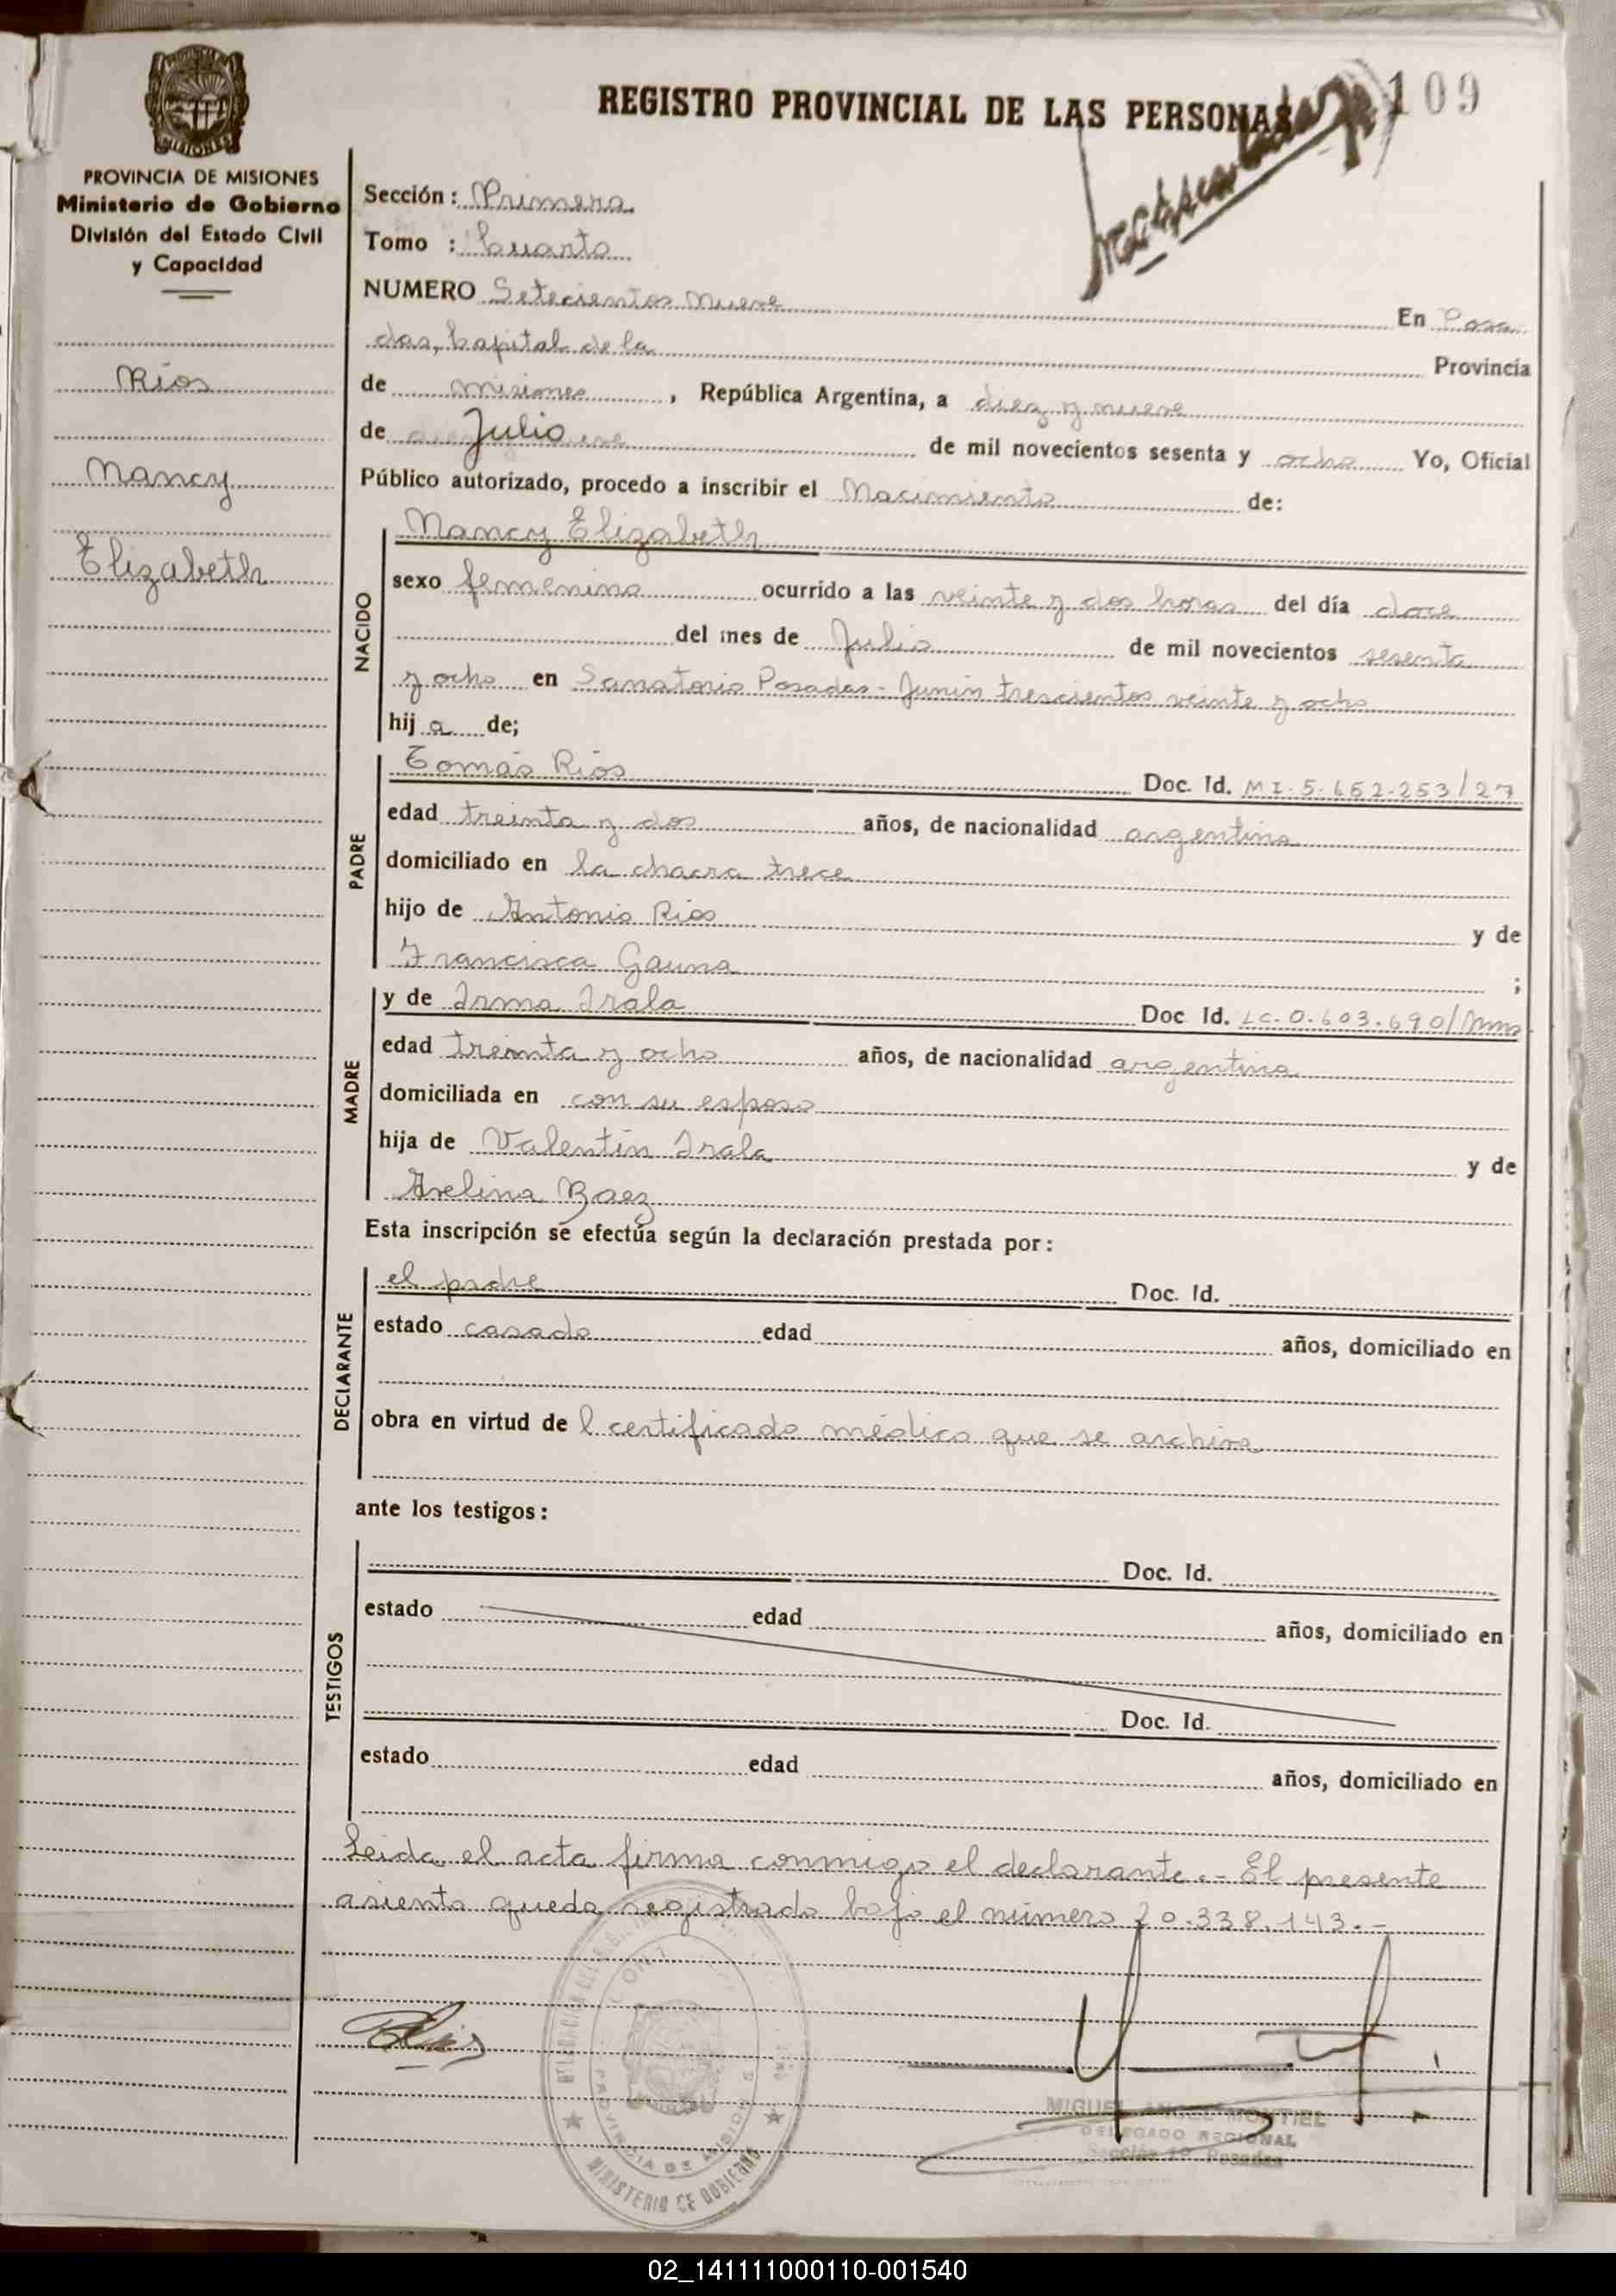 REGISTRO PROVINCIAL DE LAS PERSONAS
109
MISIONES
PROVINCIA DE MISIONES
Ministerio de Gobierno
División del Estado Civil
y Capacidad
Ríos
Nancy
Elizabeth
Sección : Primera
Tomo : Cuarto
NUMERO Setecientos nueve En Posa
das, Capital de la Provincia
de misiones , República Argentina, a diez y nueve
de Julio de mil novecientos sesenta y ocho Yo, Oficial
Público autorizado, procedo a inscribir el Nacimiento de:
NACIDO
Nancy Elizabeth
sexo femenino ocurrido a las veinte y dos horas del día doce
del mes de Julio de mil novecientos sesenta
y ocho en Sanatorio Posadas - Junín trescientos veinte y ocho
hij a de;
PADRE
Tomás Ríos Doc. Id. MI. 5.652.253/27
edad treinta y dos años, de nacionalidad argentina
domiciliado en la chacra trece
hijo de Antonio Ríos y de
Francisca Gauna ;
MADRE
y de Irma Irala Doc Id. LC. 0.603.690/
edad treinta y ocho años, de nacionalidad argentina
domiciliada en con su esposo
hija de Valentín Irala y de
Avelina Baez
Esta inscripción se efectúa según la declaración prestada por:
DECLARANTE
el padre Doc. Id.
estado casado edad años, domiciliado en
obra en virtud de l certificado médico que se archiva
ante los testigos:
TESTIGOS
Doc. Id.
estado edad años, domiciliado en
Doc. Id.
estado edad años, domiciliado en
Leida el acta firma conmigo el declarante.- El presente
asiento queda registrado bajo el número 20.338.143.-
PROVINCIA DE MISIONES
MINISTERIO DE GOBIERNO
MIGUEL ANGEL MONTIEL
DELEGADO REGIONAL
Sección 1º Posadas
02_141111000110-001540